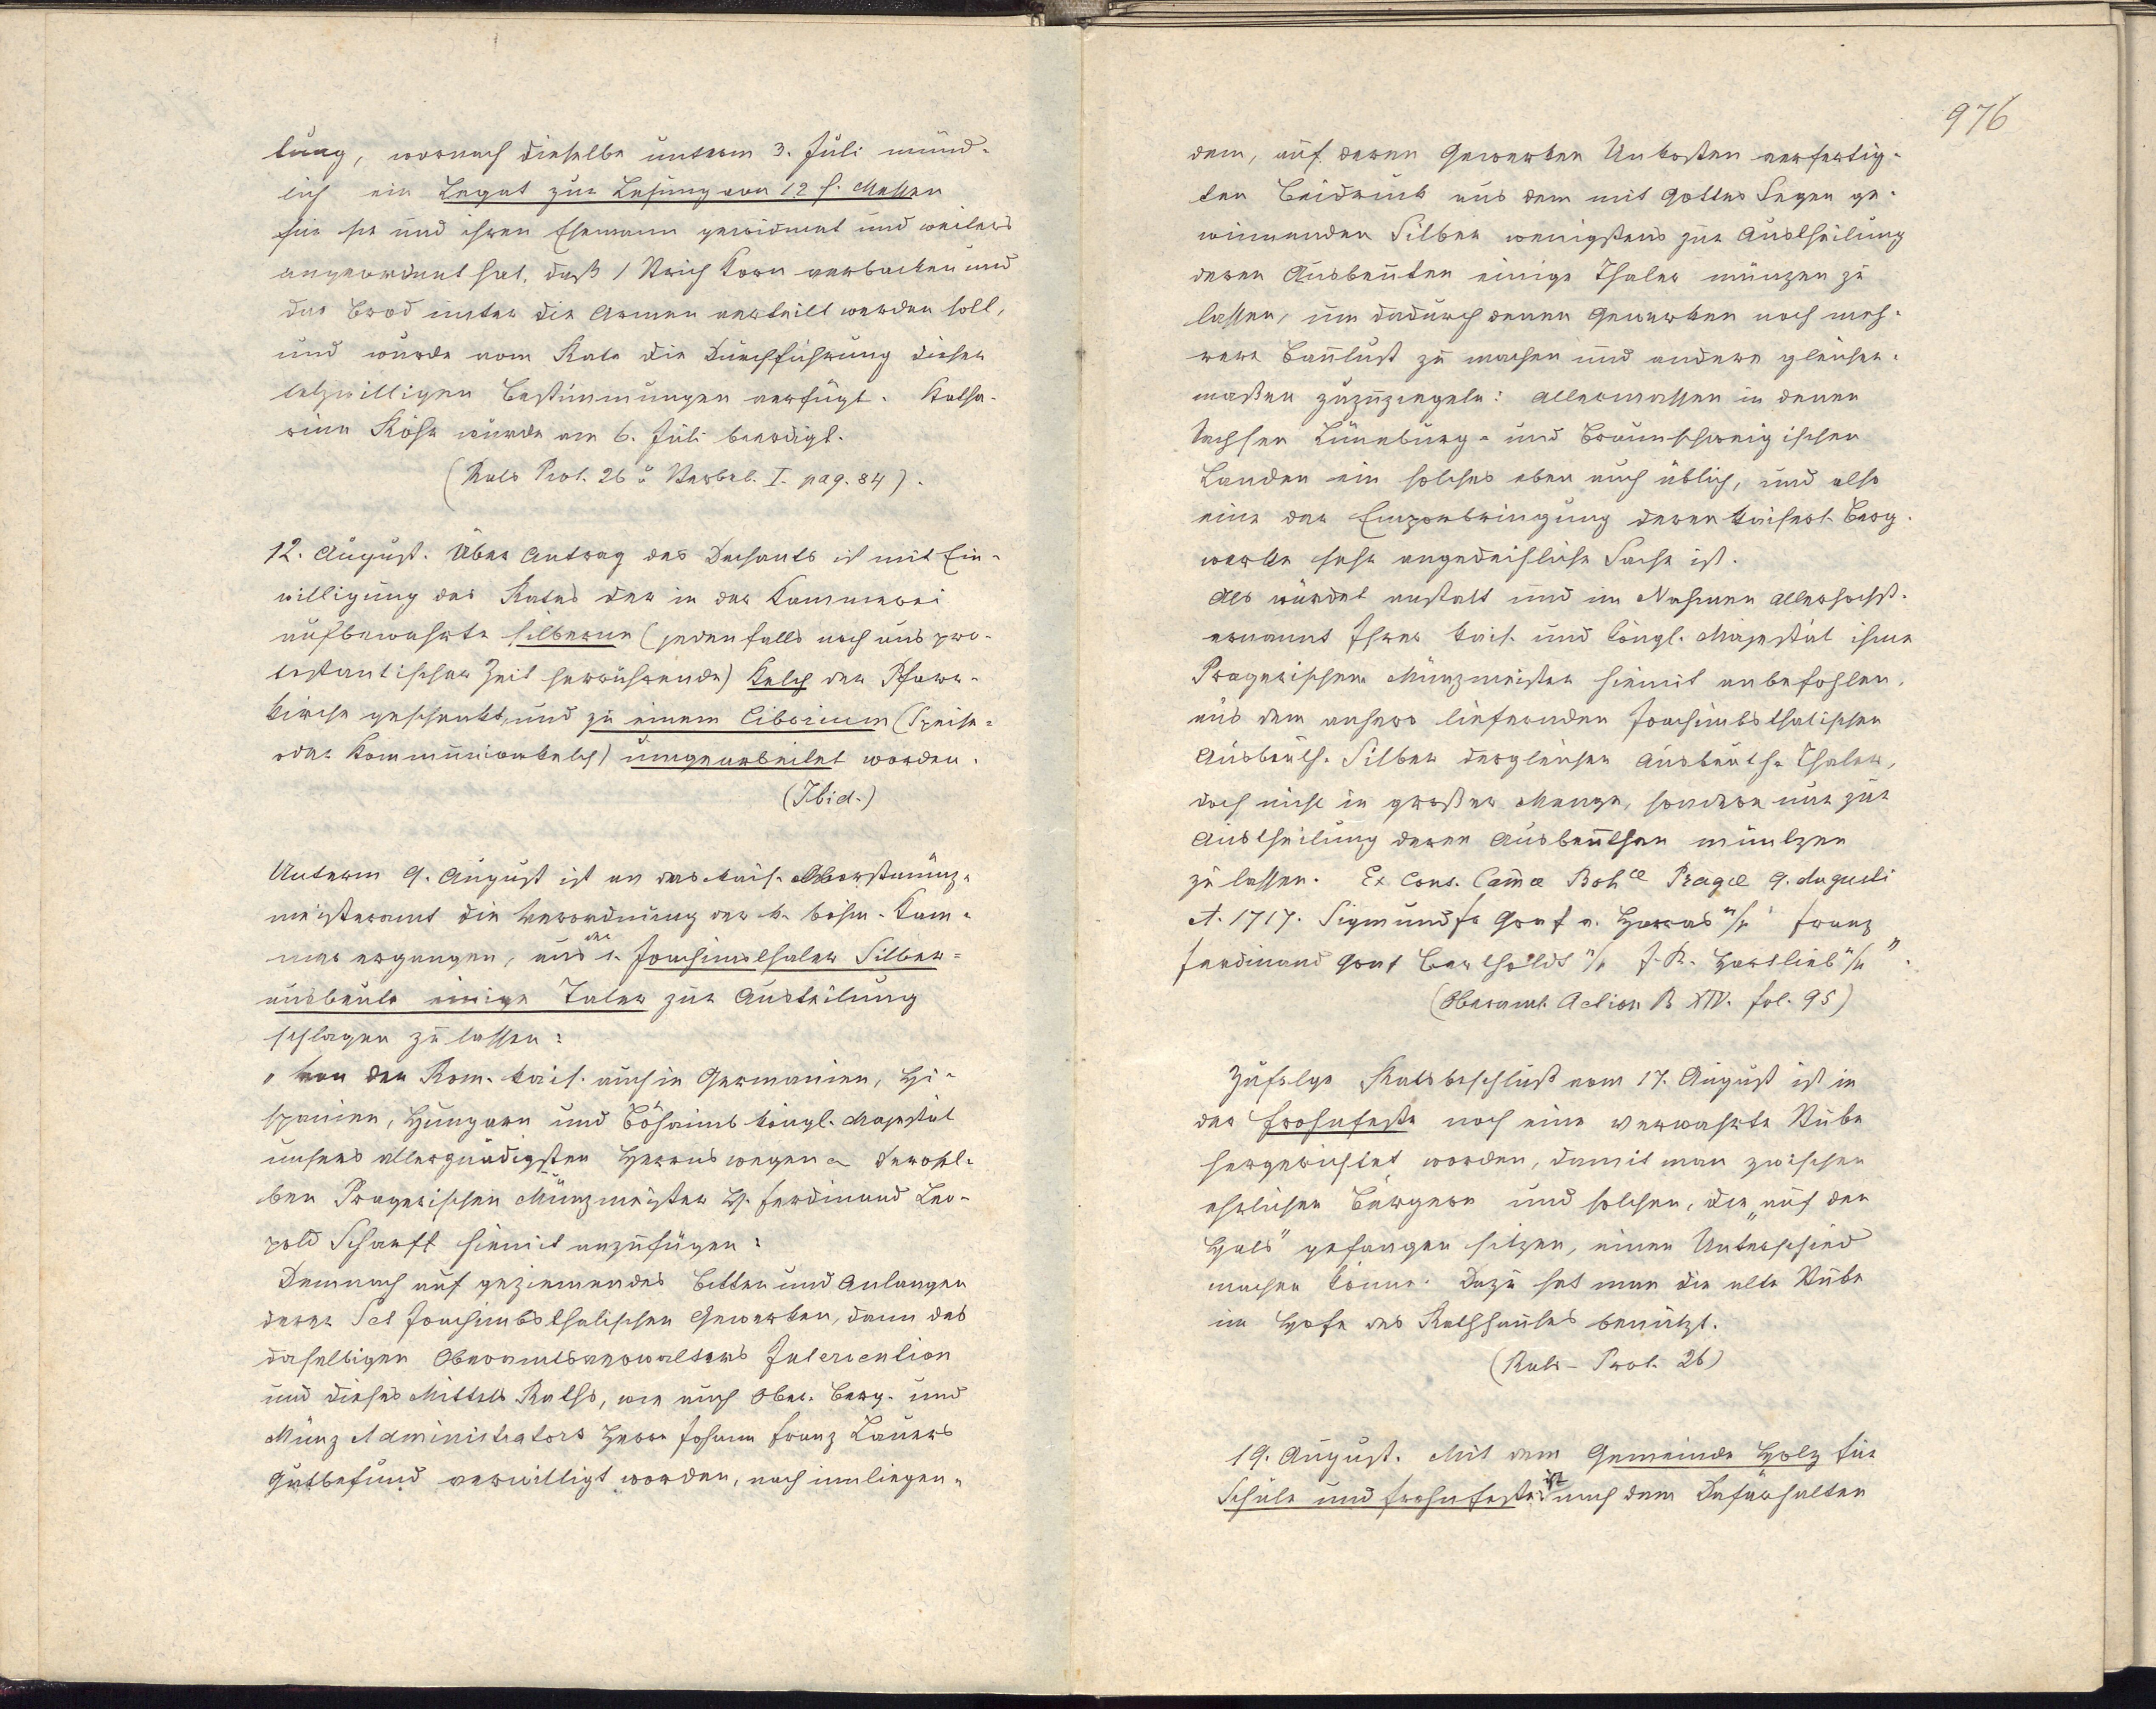 tung, wornach dieselbe unterm 3. Juli münd-
lich ein Legat zur Lesung von 12 h. Messen
für sie und ihren Ehemann gewidmet und weiters
angeordnet hat, daß 1 Strich Korn verbacken und
das Brod unter die Armen verteilt werden soll,
und wurde vom Rate die Durchführung dieser
letzwilligen Bestimmungen verfügt. Katha-
rina Röhr wurde am 6. Juli beerdigt.
(Rats Prot. 26 u Sterbeb. I. pag. 84).
12. August. Über Antrag des Dechants ist mit Ein-
willigung des Rates der in der Kammerei
aufbewahrte silberne (jedenfalls noch aus pro-
testantischer Zeit herrührende) Kelch der Pfarr-
kirche geschenkt, und zu einem Ciborium (Speise-
oder Kommunionkelch) umgearbeitet worden.
(Ibid.)
Unterm 9. August ist an das kais. Oberstmünz-
meisteramt die Verordnung der k. böhm. Kam-
mer ergangen, aus der Joachimsthaler Silber-
ausbeute einige Taler zur Austeilung
schlagen zu lassen:
"Von der Rom. kais. auch in Germanien, Hi-
spanien, Hungarn und Böhaimb königl. Majestät
unsers allergnädigsten Herrns wegen derosel-
ben Pragerischen Münzmeister H. Ferdinand Leo-
pold Scharff hiemit anzufügen:
Demnach auf geziemendes Bitten und Anlangen
derer Sct Joachimbsthalischen Gewerken, dann des
daselbigen Oberamtsverwalters Intervention
und dieses Mittels Raths, wie auch Ober. Berg- und
Münz Administrators Herrn Johann Franz Lauers
Gutbefund verwilligt worden, nach innliegen-
976
dem, auf deren Gewerken Unkosten verfertig-
ten Beidruck aus dem mit Gottes Segen ge-
winnenden Silber wenigstens zur Austheilung
deren Ausbeuten einige Thaler münzen zu
lassen, um dadurch denen Gewerken noch meh-
rere Baulust zu machen und andere gleicher-
maßen zuzuziegeln: allermassen in denen
Sachsen Lüneburg- und Braunschweigischen
Landen ein solches eben auch üblich, und also
eine der Emporbringung deren kaiserl. Berg-
werke sehr angedeihliche Sache ist.
Als würdet anstatt und im Nahmen allerhöchst-
ernannt Ihrer kais. und königl. Majestät ihme
Pragerischem Münzmeister hiemit anbefohlen,
aus dem anhero liefernden Joachimbsthalischen
Ausbeuth-Silber dergleichen Ausbeuth-Thaler,
doch nicht in großer Menge, sondern nur zur
Austheilung deren Ausbeuthen müntzen
zu lassen. Ex Cons. Camæ Bohce Pragæ 9. Augusti
A. 1717. Sigmund Fr Graf v. Harras Franz
Ferdinand Graf Bertholdt J. R. Hartlieb".
(Oberamt. Action B XIV. fol. 95)
Zufolge Ratsbeschluß vom 17. August ist in
der Frohnfeste noch eine verwahrte Stube
hergerichtet worden, damit man zwischen
ehrlichen Bürgern und solchen, die "auf den
Hals" gefangen sitzen, einen Unterschied
machen könne. Dazu hat man die alte Stube
im Hofe des Rathhauses benützt.
(Rats-Prot. 26)
19. August. Mit dem Gemeinde Holz für
Schule und Frohnfeste ist nach dem Dafürhalten